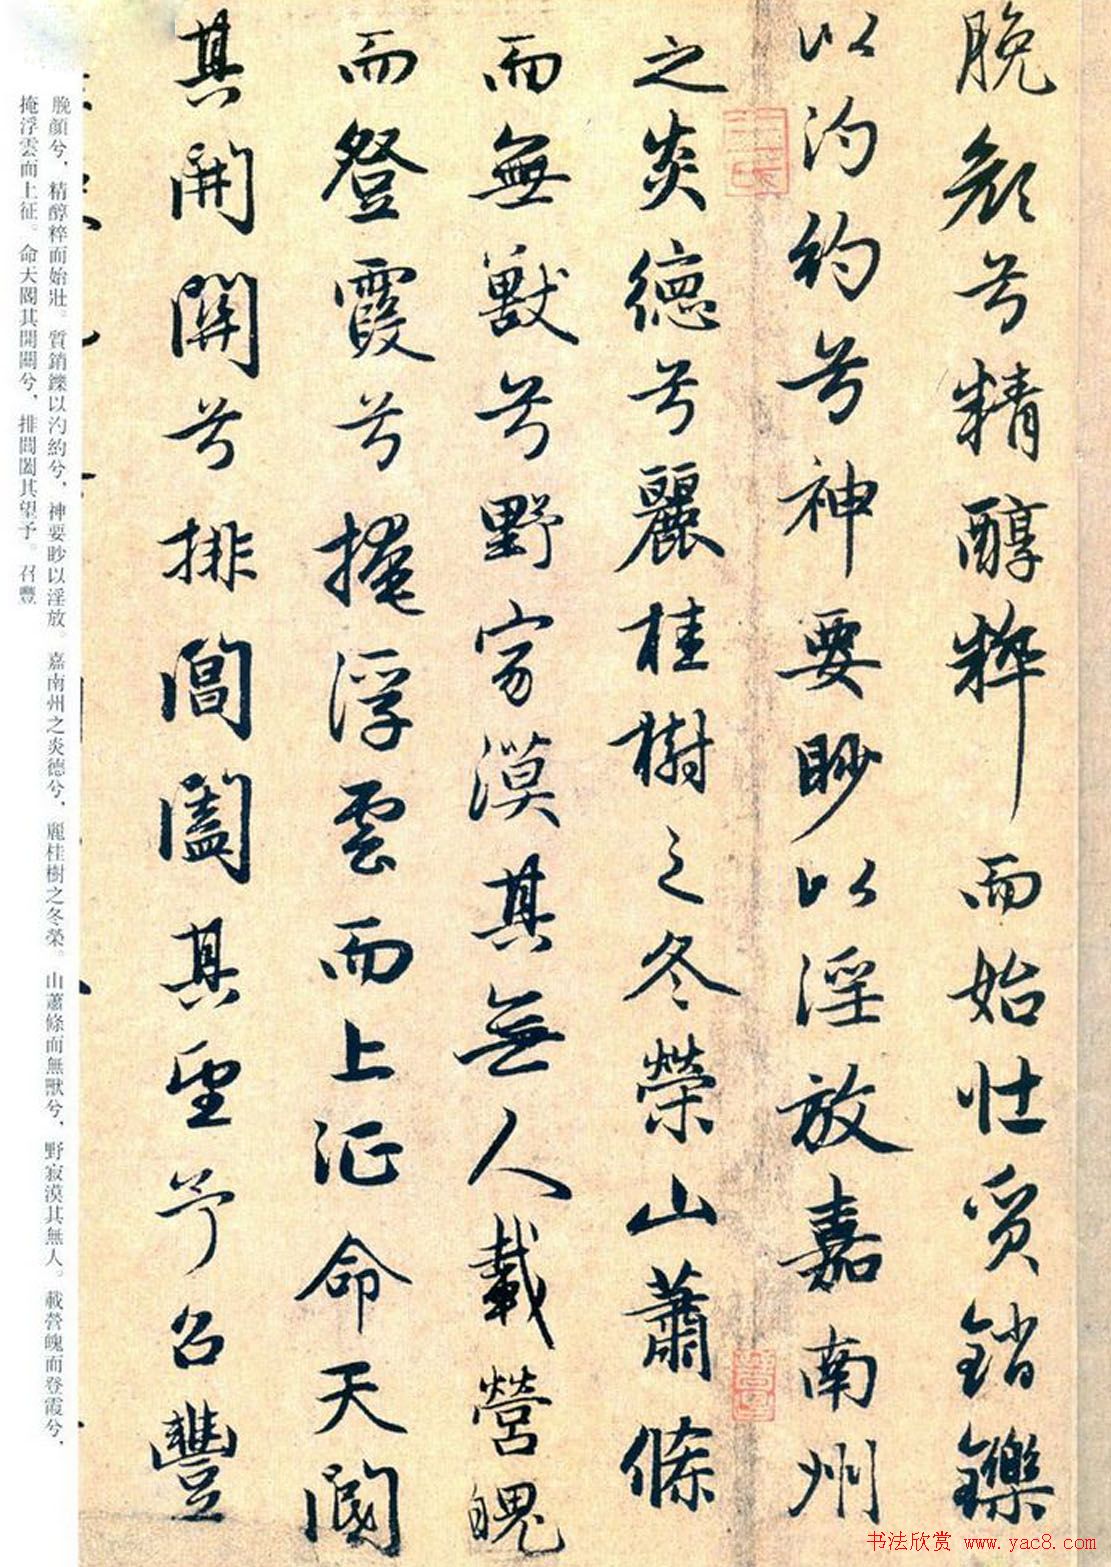 脕顔兮精醇粹而始壮質銷鑠
以汋約兮神要眇以淫放嘉南州
之炎德兮麗桂樹之冬榮山蕭條
而無獸兮野寂漠其無人載營魄
而登霞兮掩浮雲而上征命天閽
其開關兮排閶闔其望予召豐
脕顔兮，精醇粹而始壯。質銷鑠以汋約兮，神要眇以淫放。嘉南州之炎德兮，麗桂樹之冬榮。山蕭條而無獸兮，野寂漠其無人。載營魄而登霞兮，
掩浮雲而上征。命天閽其開關兮，排閶闔其望予。召豐
书法欣赏 www.yac8.com